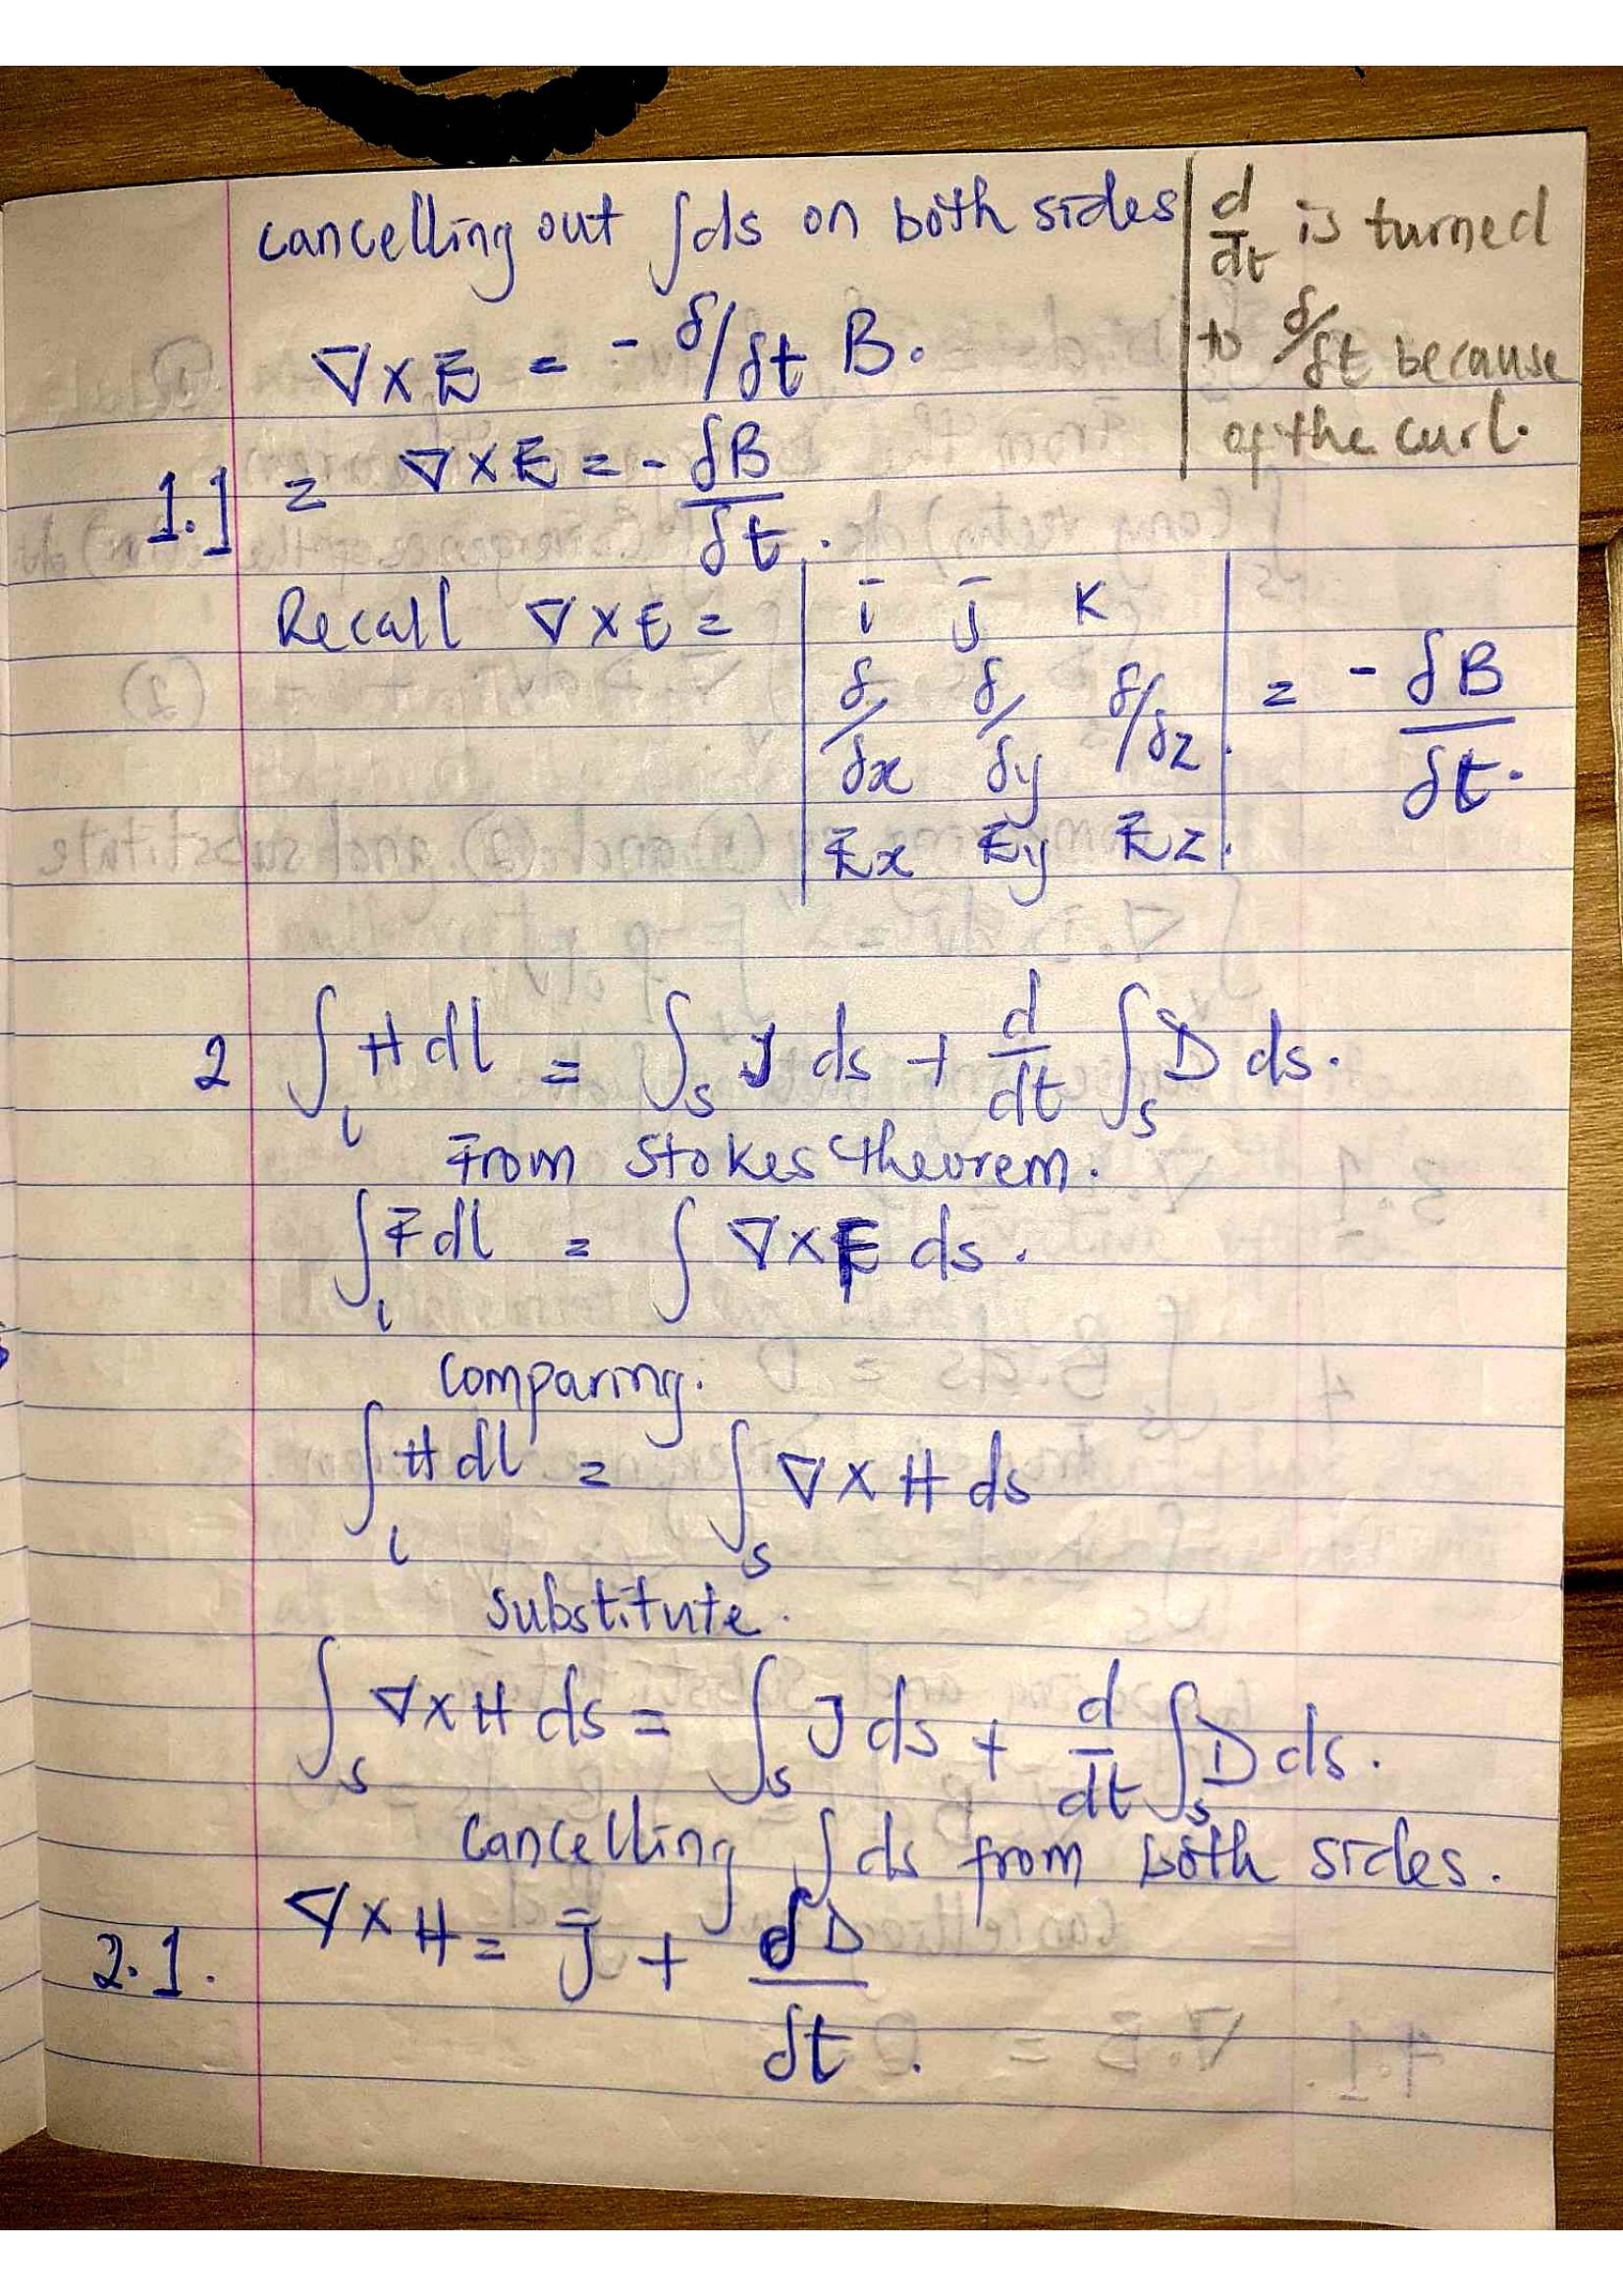 cancelling out ∫ds on both sides
d/dt is turned
to δ/δt because
of the curl.
∇×Ē = - δ/δt B.
1.1 = ∇×Ē = - δB/δt.
Recall ∇×E = | ī j̄ K |
| δ/δx δ/δy δ/δz | = - δB/δt.
| Ēx Ēy Ēz |
2 ∫_l H dl = ∫_s J ds + d/dt ∫_s D ds.
From Stokes theorem.
∫_l F̄ dl = ∫ ∇×F ds.
Comparing.
∫_l H dl = ∫_s ∇×H ds
substitute.
∫_s ∇×H ds = ∫_s J ds + d/dt ∫_s D ds.
Cancelling ∫ds from both sides.
2.1. ∇×H = J̄ + δD/δt.